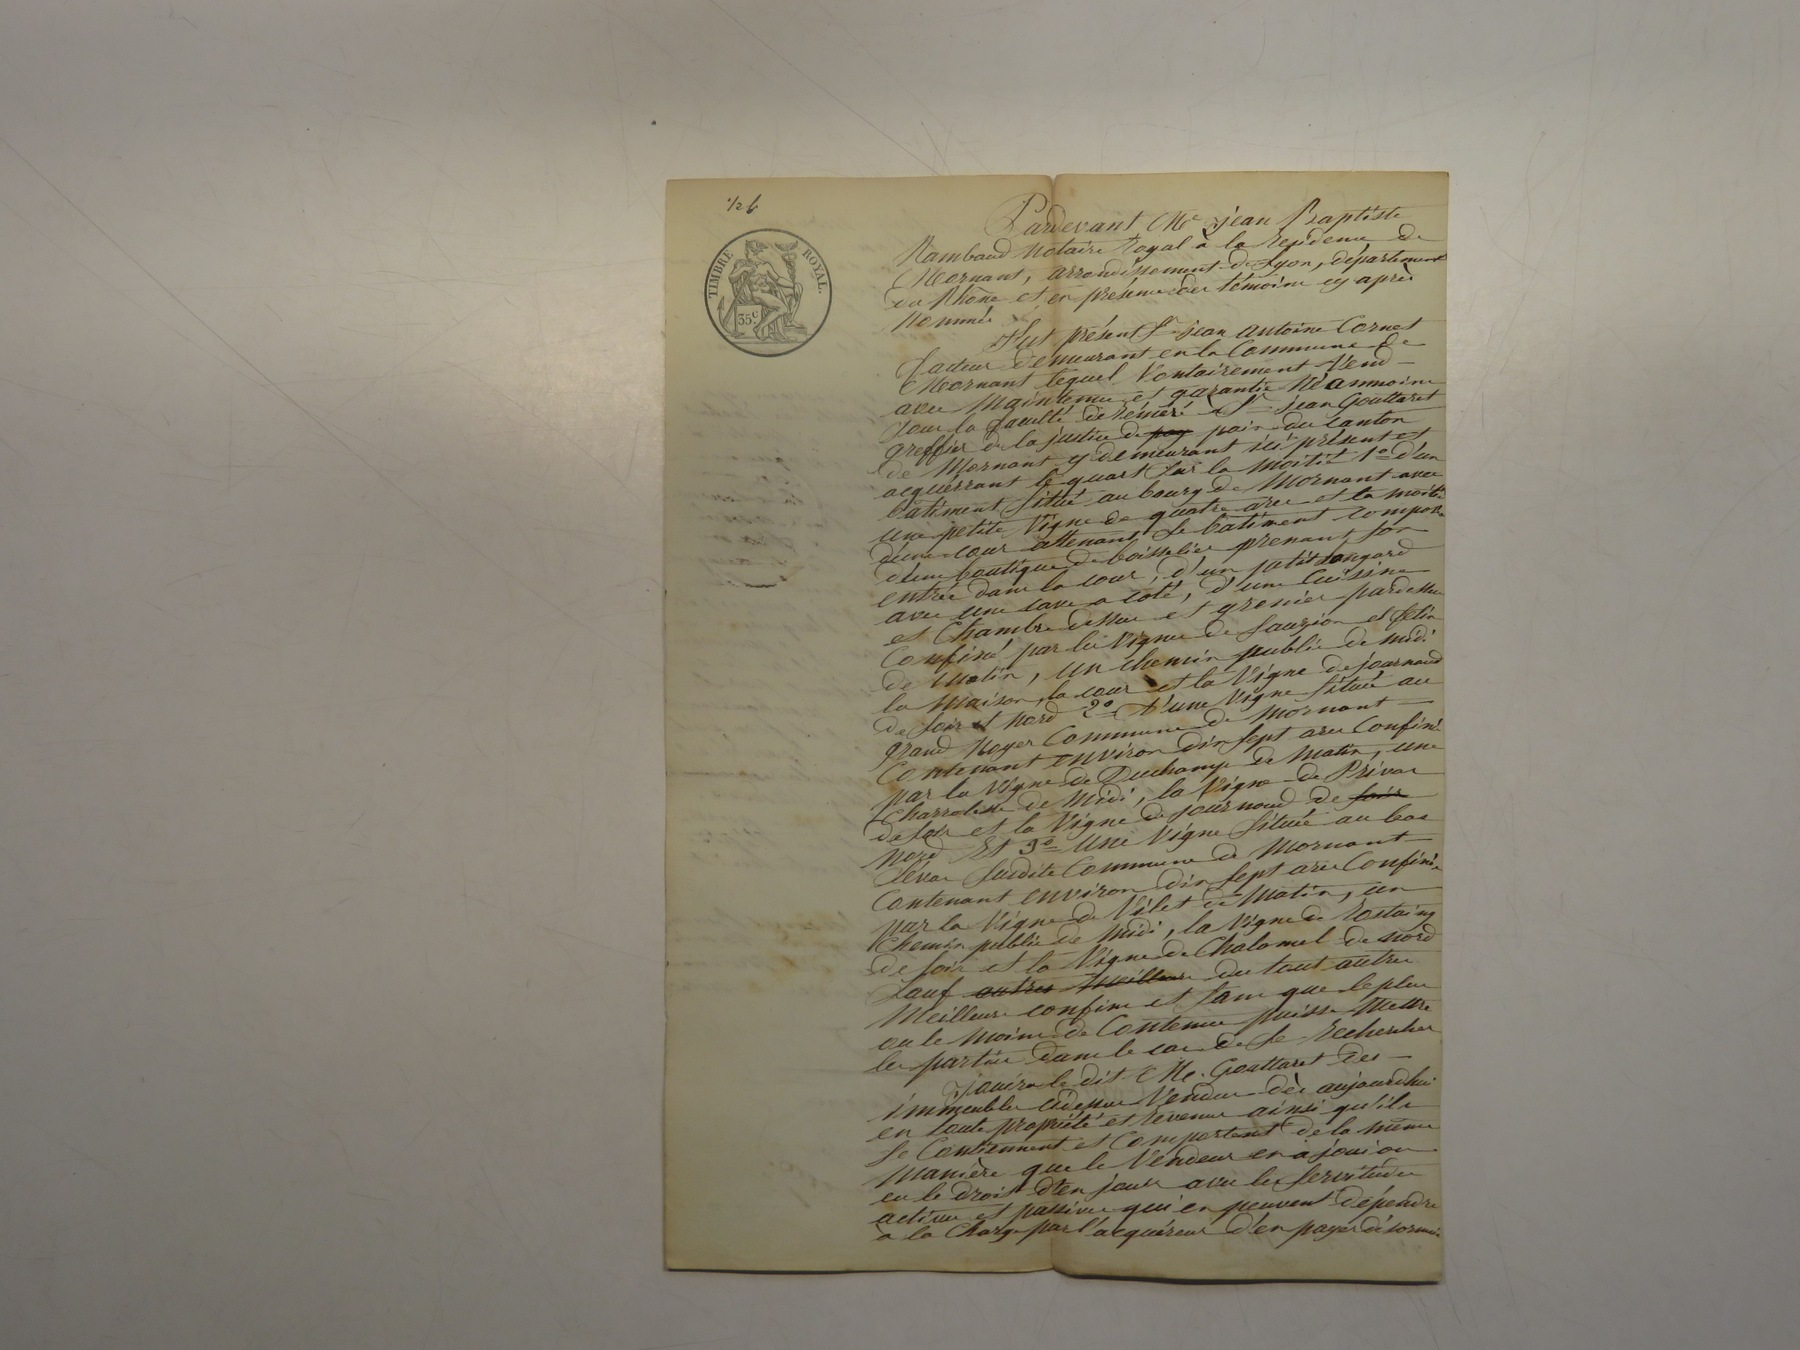 TIMBRE ROYAL.
35c
Pardevant Me jean Baptiste
Rambaud Notaire Royal à la residence de
Mornant, arrondissement de Lyon, département
du Rhône et en présence des témoins cy après
Nommés
Fut présent Sr jean antoine Cornet
facteur demeurant en la Commune de
Mornant lequel Vontairement Vend
avec Maintenue et garantie Néanmoins
sous la faculté de réméré à Sr jean Gouttaret
greffier de la justice de pay paix du canton
de Mornant y demeurant ici présent et
acquerrant le quart sur la moitié 1o d'un
bâtiment situé au bourg de Mornant avec
une petite Vigne de quatre ares et la moitié
d'une cour attenant, le batiment composé
d'une boutique de boisselier prenant son
entrée dans la cour, d'un petit angard
avec une cave a coté, d'une Cuisine
et Chambre dessus et grenier pardessus
Confiné par les Vignes de Sauzion et
de Matin, un chemin public de midi
la Maison, la cour et la Vigne de journoud
de soir et Nord 2o D'une Vigne située au
grand Noyer Commune de Mornant
Contenant environ dix sept ares Confiné
par la Vigne de Duchamp de Matin, une
Charrotiere de Midi, la Vigne de Privas
de soir et la Vigne de journoud de soir
Nord Et 3o Une Vigne située au bas
susdite Commune de Mornant
Contenant environ dix sept ares Confinés
par la Vigne de Vilet de Matin, un
Chemin public de Midi, la Vigne de Rostaing
de soir et la Vigne de Chalamel de nord
Sauf autres Meilleurs du tout autres
Meilleurs confins et sans que le plus
ou le moins de Contenue puisse Mettre
les parties dans le cas de se rechercher
Jouira le dit Me. Gouttaret des
immeubles cidessus Vendus dès aujourdhui
en toute propriété et revenus ainsi qu'ils
se Contiennent et Comportent de la même
Manière que le Vendeur en a joui ou
eu le droit d'en jouir avec les servitudes
actives et passives qui en peuvent dépendre
à la Charge par l'acquéreur d'en payer désormais